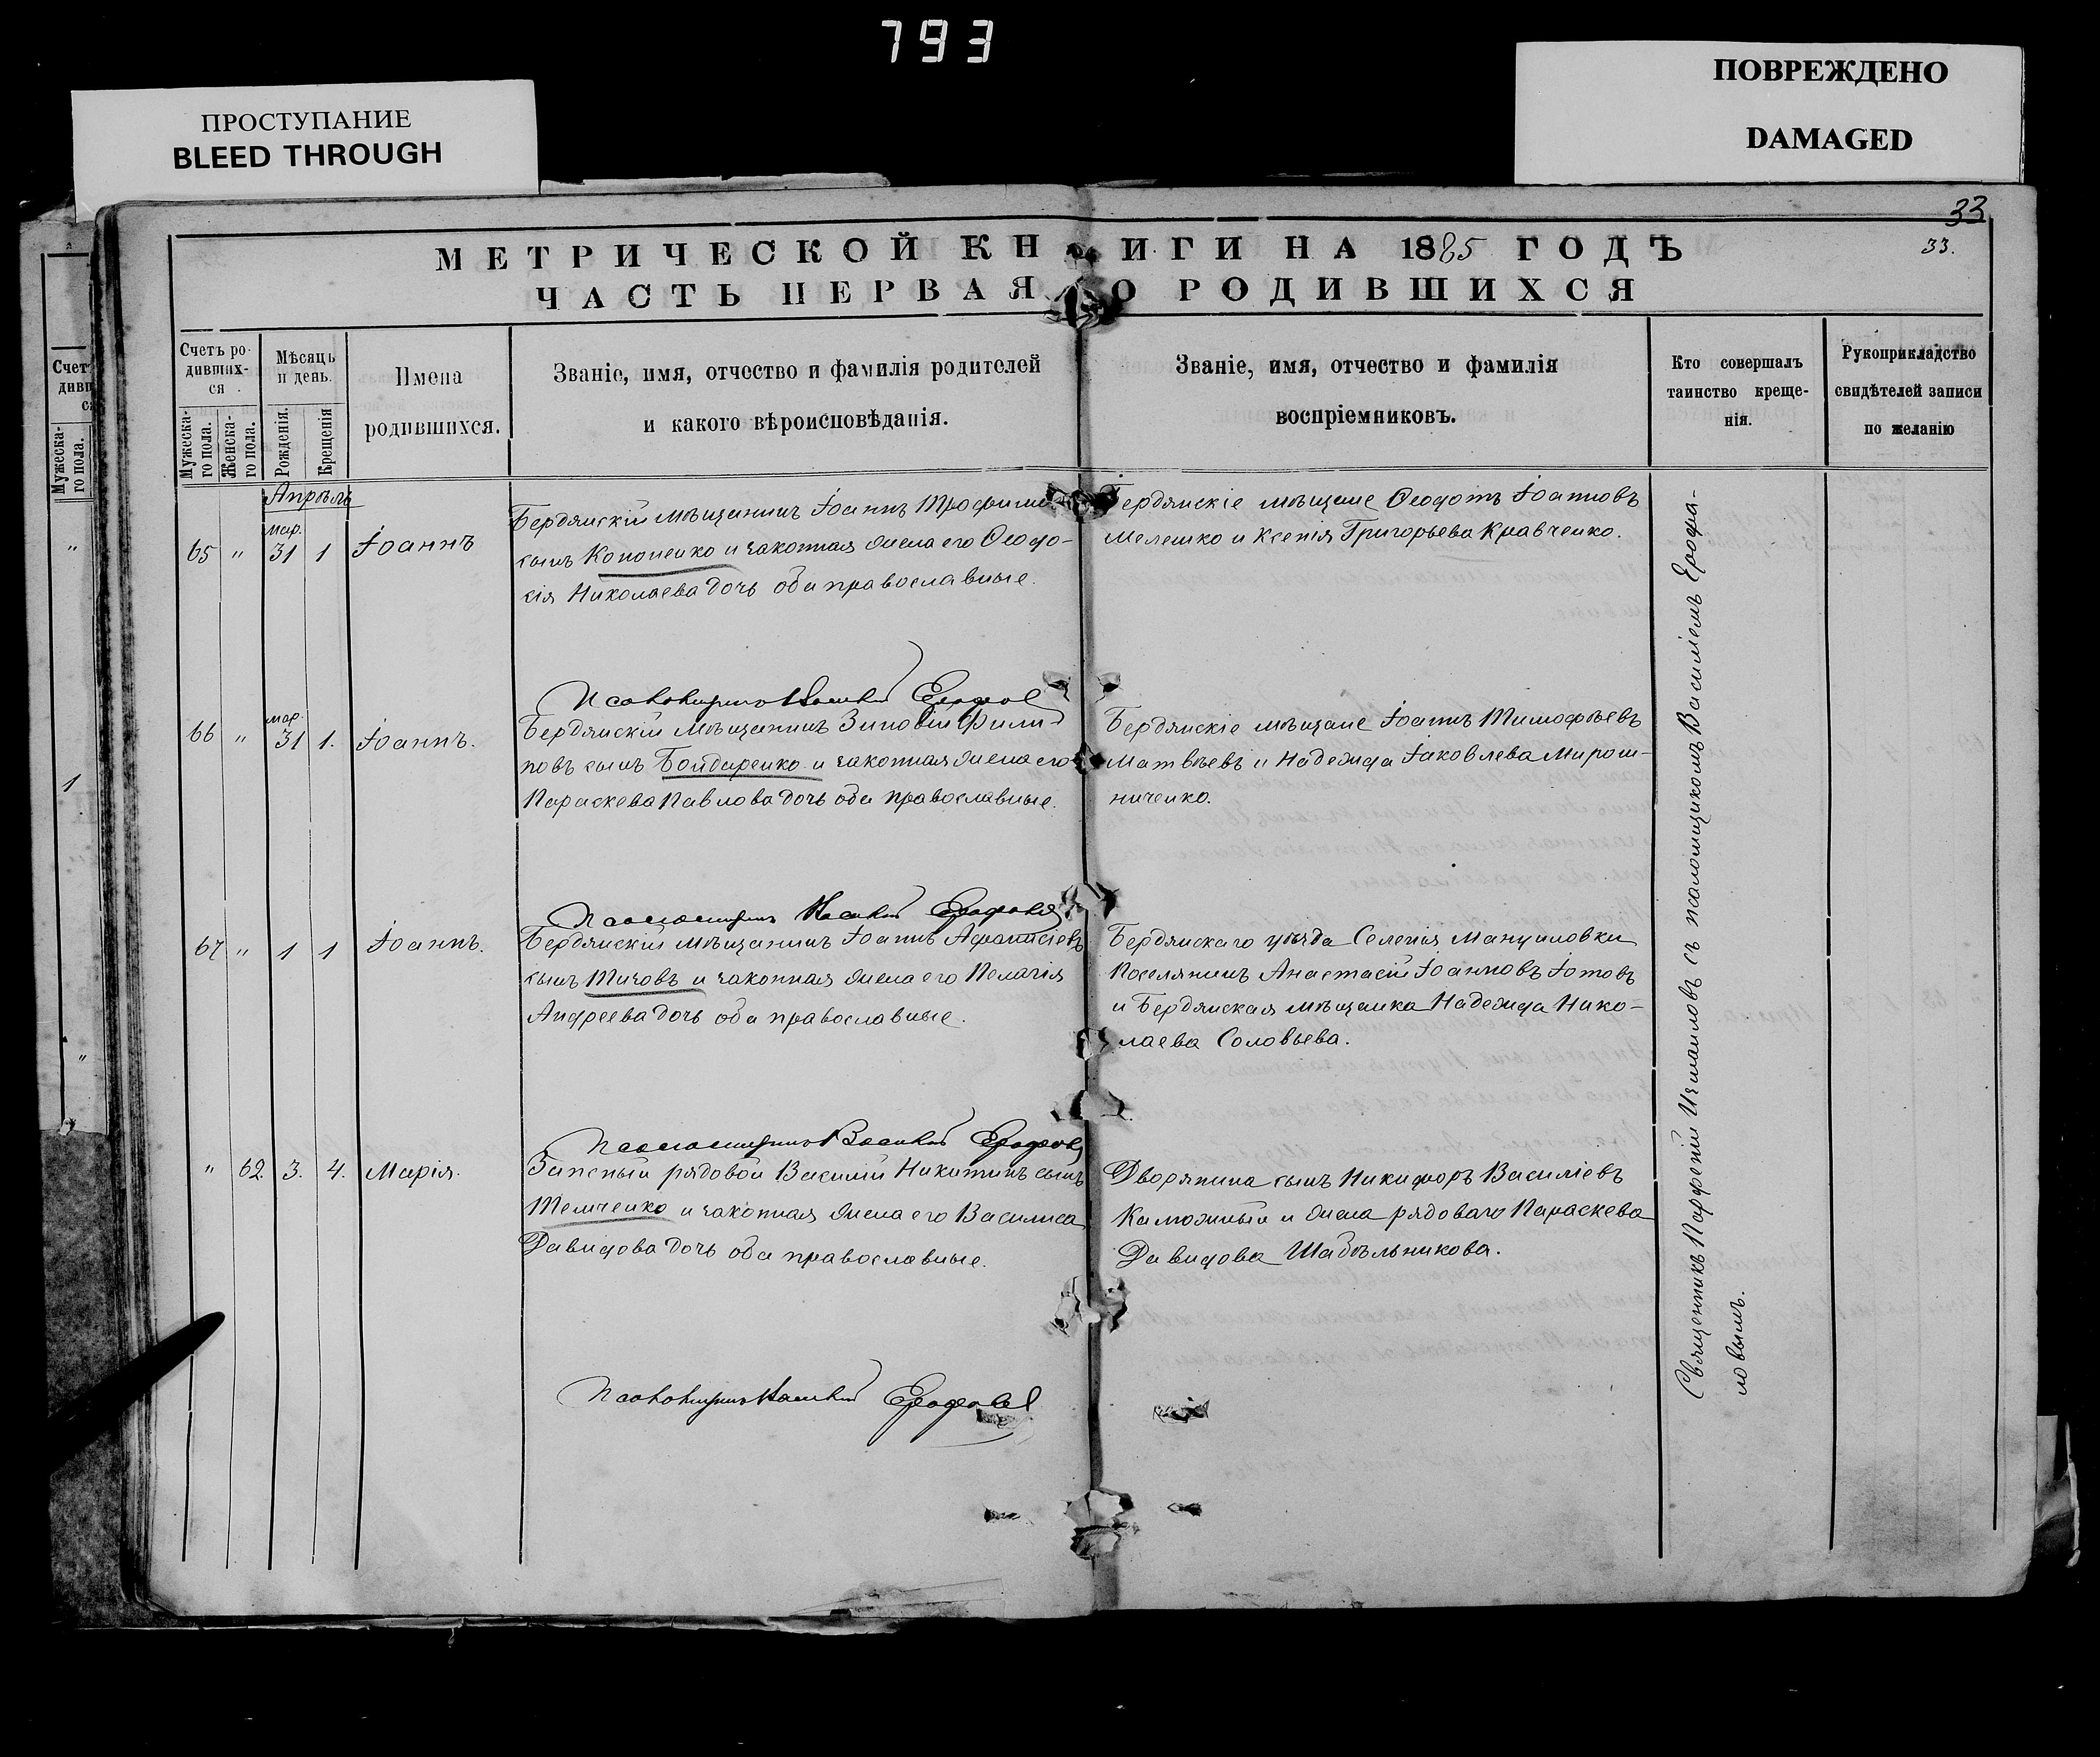 793
ПРОСТУПАНИЕ
BLEED THROUGH
ПОВРЕЖДЕНО
DAMAGED
33
33.
МЕТРИЧЕСКОЙ КНИГИ НА 1885 ГОДЪ
ЧАСТЬ ПЕРВАЯ О РОДИВШИХСЯ
Счетъ ро-
дивших-
ся
Мужеска-
го пола.
Женска-
го пола.
Мѣсяцъ
и день.
Рожденія.
Крещенія
Имена
родившихся.
Званіе, имя, отчество и фамилія родителей
и какого вѣроисповѣданія.
Званіе, имя, отчество и фамилія
воспріемниковъ.
Кто совершалъ
таинство креще-
нія.
Рукоприкладство
свидѣтелей записи
по желанію
Мужеска-
го пола.
"
1
"
Апрѣль
65 " мар. 31 1 Іоаннъ
Бердянскій мѣщанинъ Іоаннъ Трофимо
сынъ Кононенко и законная жена его Ѳеодо-
сія Николаева дочь оба православные.
Бердянскіе мѣщане Ѳеодотъ Іоанновъ
Мелешко и Ксенія Григорьева Кравченко.
Псаломщикъ Василій
66 " мар. 31 1. Іоаннъ.
Бердянскій мѣщанинъ Зиновій Филип-
повъ сынъ Бондаренко и законная жена его
Параскева Павлова дочь оба православные.
Бердянскіе мѣщане Іоаннъ Тимофѣевъ
Матвѣевъ и Надежда Іаковлева Мирош-
ниченко.
Псаломщикъ Василій
67 " 1 1 Іоаннъ.
Бердянскій мѣщанинъ Іоаннъ Афанасіевъ
сынъ Тичовъ и законная жена его Пелагія
Андреева дочь оба православные.
Бердянскаго уѣзда Селенія Мануиловки
Поселянинъ Анастасій Іоанновъ Іотовъ
и Бердянская мѣщанка Надежда Нико-
лаева Соловьева.
Псаломщикъ Василій
" 62. 3. 4. Марія.
Запасный рядовой Василій Никитинъ сынъ
Темченко и законная жена его Василиса
Давидова дочь оба православные.
Дворянина сынъ Никифоръ Василіевъ
и жена рядоваго Параскева
Давидова Шабѣльникова.
Псаломщикъ Василій
Священникъ Парфеній Измаиловъ съ псаломщикомъ Василіемъ Ерофа-
ловымъ.